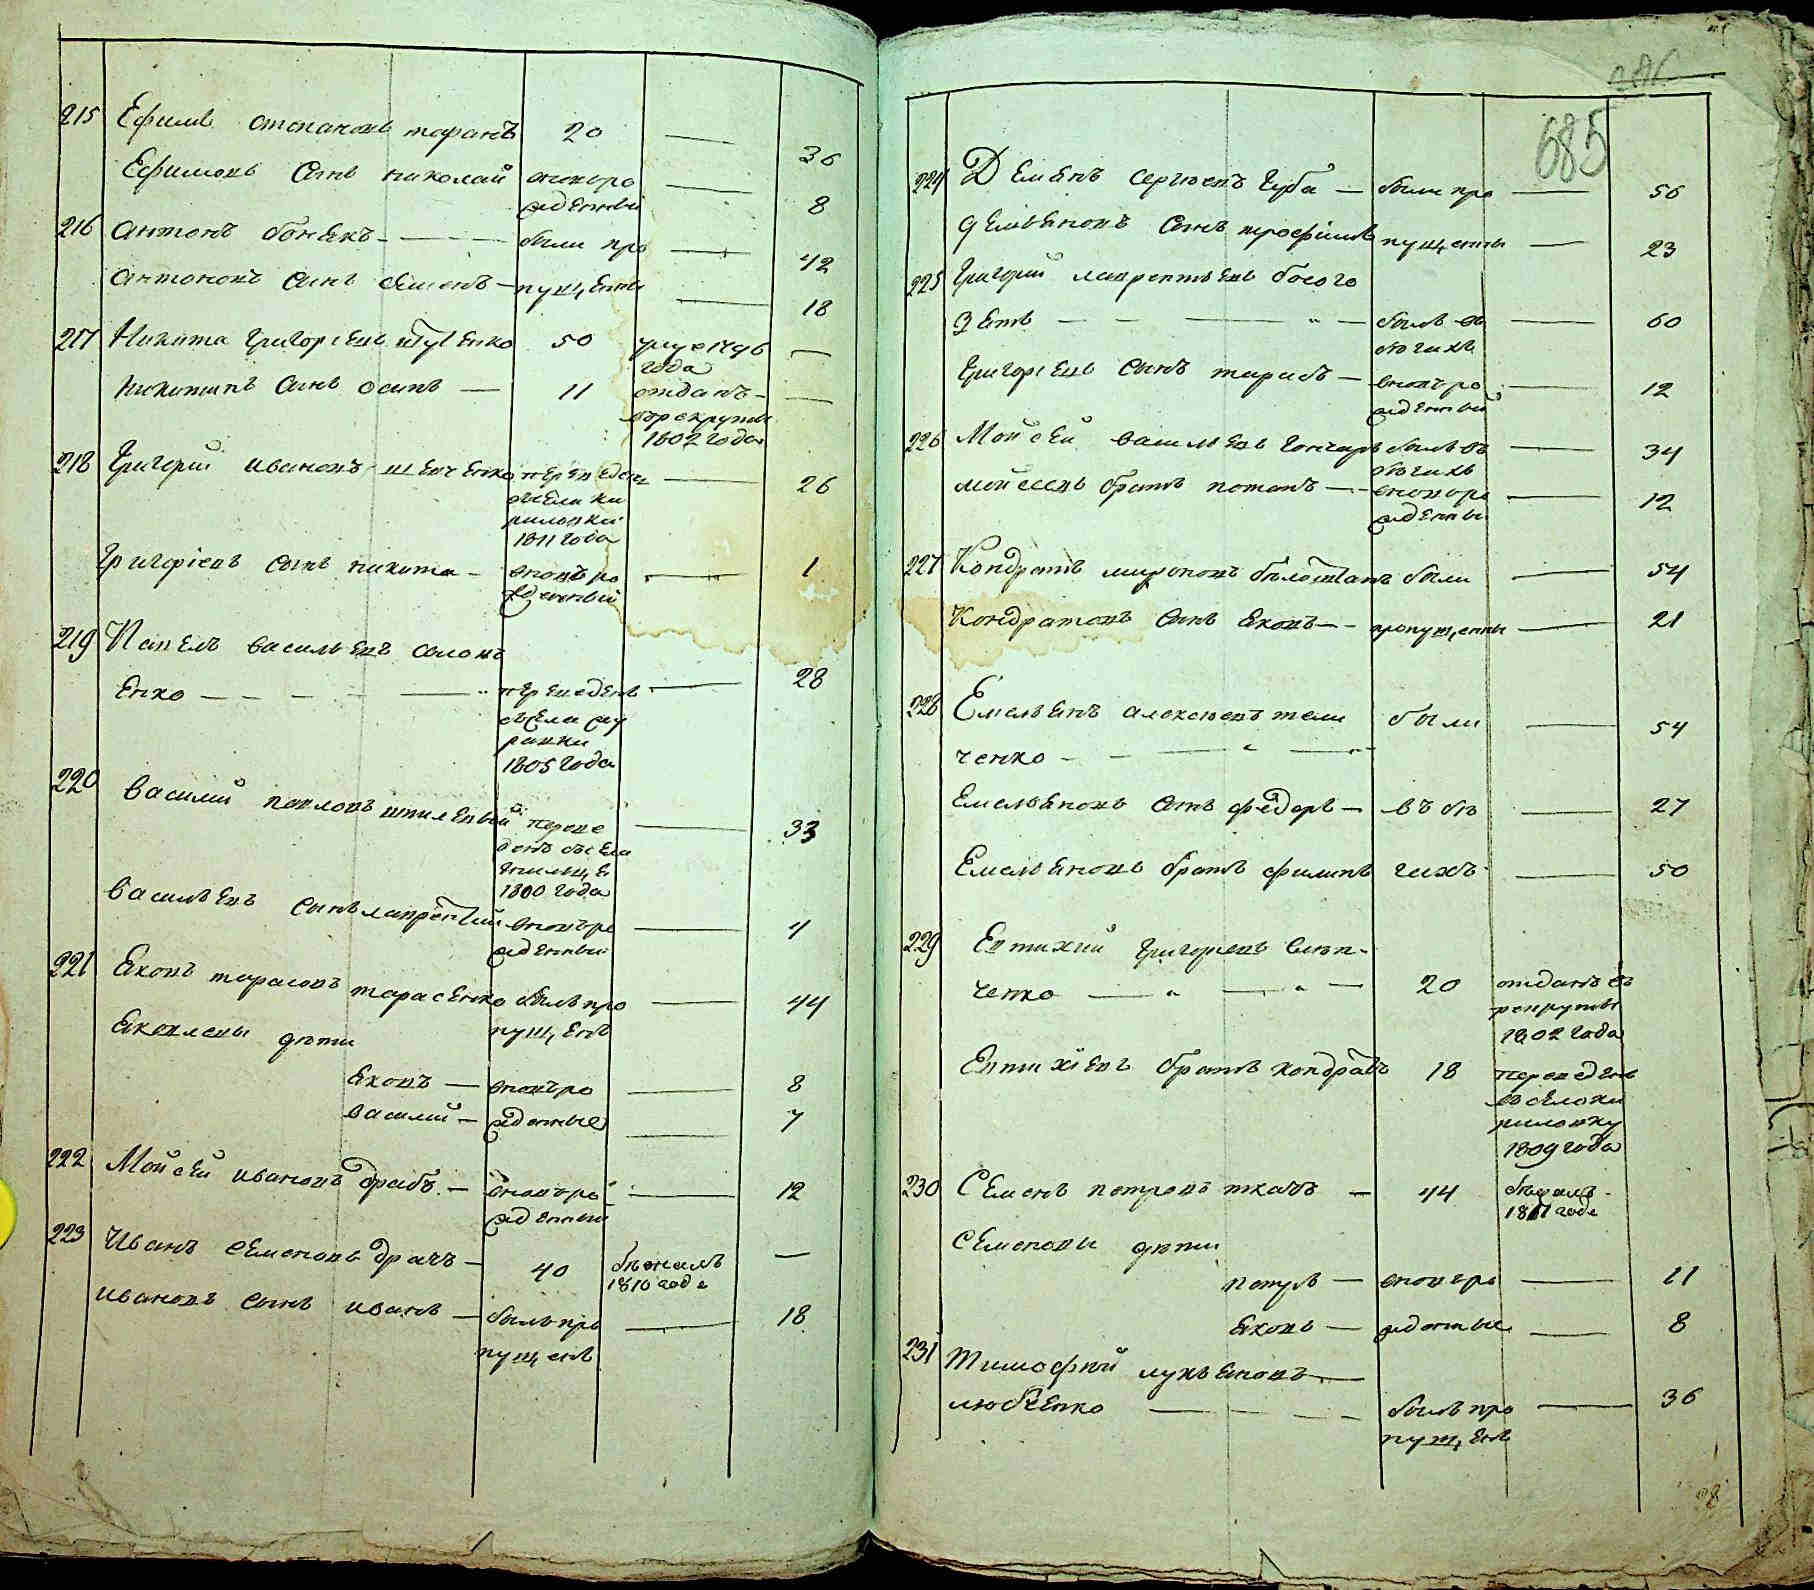 215 Ефимъ степановъ таранъ 20 — 36
Ефимовъ сынъ николай вновьро — 8
жденный
216 антонъ были про — 42
антоновъ сынъ семенъ — пущены — 18
217 Никита григорьевъ 50 умре 1796 —
года
никитинъ сынъ осипъ — 11 отданъ —
върекруты
1802 года
218 григорий ивановъ шевченко переведенъ — 26
съсела ки
риловки
1811 года
григорiевъ сынъ никита — вновьро — 1
жденный
219 Павелъ васильевъ солов
енко — переведенъ — 28
съсела
1805 года
220 василий павловъ переве — 33
денъ съсела
1800 года
васильевъ сынъ лаврентий вновьро — 4
жденный
221 яковъ тарасовъ тарасенко былъ про — 44
пущенъ
яковлевы дети
яковъ — вновьро — 8
василий — жденные — 7
222 Мойсей ивановъ драбъ — вновьро — 12
жденный
223 Иванъ семеновъ драчъ — 40 бежалъ —
1810 года
ивановъ сынъ иванъ — былъ про — 18
пущенъ
685
224 Демянъ сергеевъ губа — были про — 56
демьяновъ сынъ трофимъ пущены — 23
225 григорий лаврентьевъ босого
зять — былъ въ — 60
бегахъ
григорьевъ сынъ тарасъ — вновьро — 12
жденный
226 Мойсей васильевъ гончаръ былъ въ — 34
бегахъ
мойсеевъ братъ потапъ — вновьро — 12
жденный
227 Кондратъ мироновъ были — 54
Кондратовъ сынъ яковъ — пропущены — 21
228 Емельянъ алексеевъ тели были — 54
ченко —
Емельяновъ сынъ федоръ — въ бе — 27
Емельяновъ братъ филипъ гахъ — 50
229 Евтихий григорьевъ слеп-
ченко — 20 отданъ въ
рекруты
1802 года
Евтихiевъ братъ кондратъ 18 переведенъ
въ село ки
риловку
1809 года
230 Семенъ петровъ ткачъ — 44 бежалъ
1811 года
Семеновы дети
петръ — вновьро — 11
яковъ — жденные — 8
231 тимофей лукьяновъ —
любченко — былъ про — 36
пущенъ